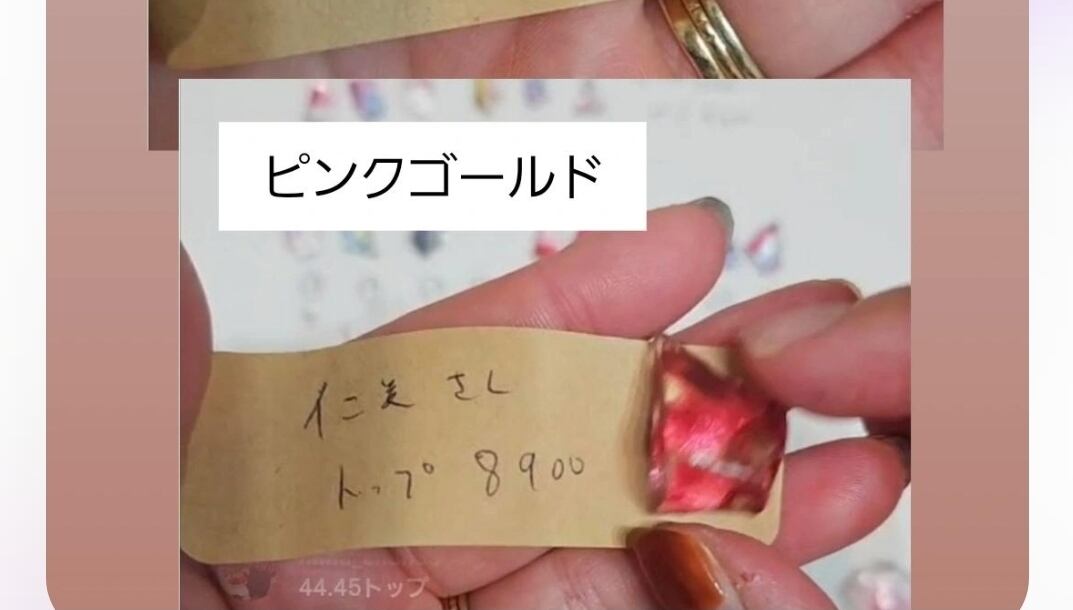 ピンクゴールド
仁美 さし
トップ 8900
44.45トップ